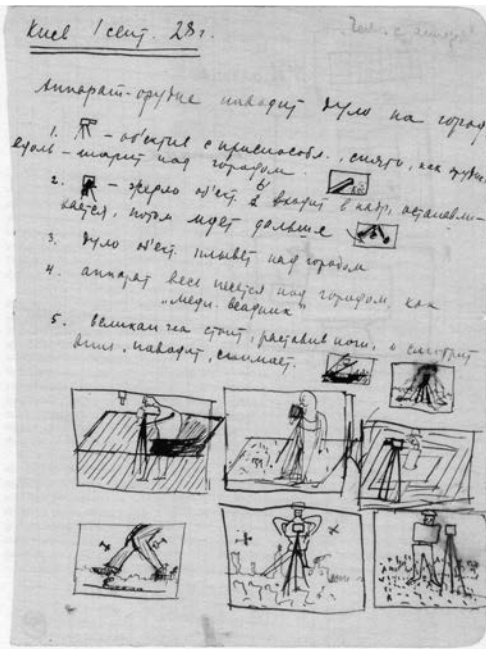 Киев 1 сент. 28 г.
Аппарат-орудие наводит дуло на город
1. – об'ектив с приспособл., снять, как орудие
вдоль – шарит над городом.
2. – жерло об'ект. входит в кадр, останавли-
вается, потом идет дальше
3. дуло об'ект. плывет над городом
4. аппарат весь несется над городом, как
„Медн. всадник"
5. великан стоит, раставив ноги, и смотрит
вниз, наводит, снимает.